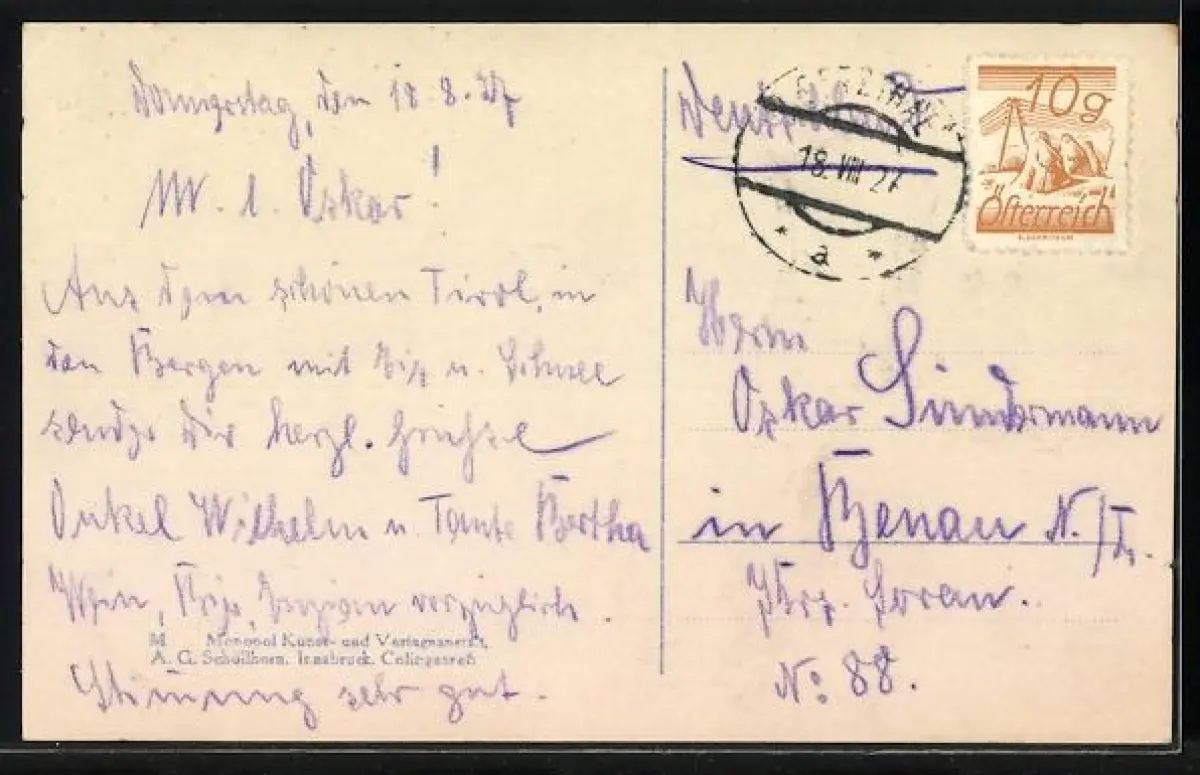 Donnerstag, den 18.8.27
M. l. Oskar!
Aus dem schönen Tirol, in
den Bergen mit Eis u. Schnee
sendet Dir herzl. Grüße
Onkel Wilhelm u. Tante Bertha
Wein, vorzüglich.
M Monopol Kunst- und Verlagsanstalt,
A. G. Schöllhorn, Innsbruck.
Stimmung sehr gut.
Deutschland
18. VIII 27
* a *
10g
Österreich
Herrn
Oskar Sündermann
in Benau N./L.
Krs. Sorau.
No: 88.